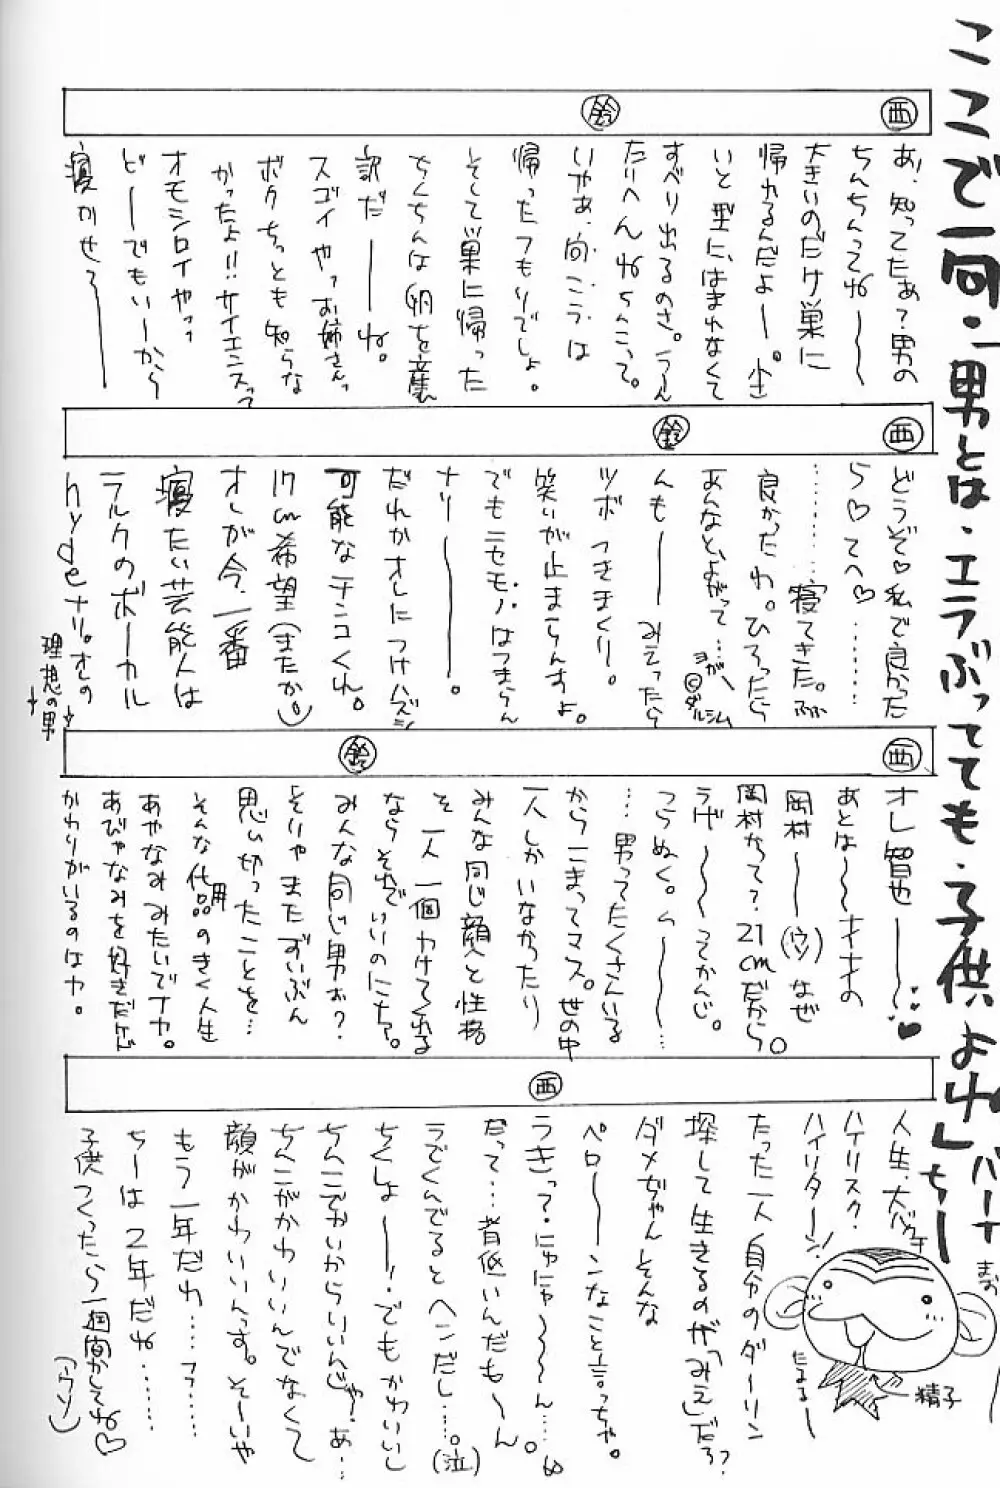 ここで一句・「男とは・エラぶっても・子供よね」ちー
西
鈴
あ、知ってたぁ?男の
ちんちんってね〜〜
大きいのだけ巣に
帰れるんだよー。小さ
いと型にはまれなくて
すべり出るのさ。うーん
たいへんねちんこって。
いやぁ、向こうは
帰ったつもりでしょ。
そして巣に帰った
ちんちんは卵を産む
訳だーーね。
スゴイやっお姉さんっ
ボクちっとも知らな
かったよ!!サイエンスって
オモシロイやっっ
どーーでもいーから
寝かせろーーー
西
鈴
どうぞ♡私で良かった
ら♡てへ♡………
………寝てきた。ふふ
良かったわ。ひろったら
あんなと、よがって…ヨガー
©ダルシム
んもーーみえったら
ツボつきまくりー。
笑いが止まらんすよ。
でもニセモノはつまらん
ナリーーー。
だれかオレにつけハズシ
可能なチンコくれ。
17cm希望(またか。)
オレが今、一番
寝たい芸能人は
ラルクのボーカル
hydeナリ。オレの
理想の男
西
鈴
オレ智也ーーー♥
あとは〜〜オオの
岡村ーー(ウソ)なぜ
岡村かって?21cmだから。
うげ〜〜ってかんじ。
つらぬく。ム〜〜
…男ってたくさんいる
からこまってマス。世の中
一人しかいなかったり
みんな同じ顔と性格
で一人一個わけてくれる
ならそれでいいのにナァ。
みんな同じ男ぉ?
そりゃまたずいぶん
思い切ったことを…
そんな代用品のきく人生
あやなみみたいでナカ。
あびゃなみを好きだけド
かわりがいるのはヤ。
西
人生、大バクチ
ハイリスク・
ハイリターン!
たった一人自分のダーリン
探して生きるのが「みえ」だろ?
ダメぢゃんそんな
ペローーンなこと言っちゃ。
うきって・にゃにゃ〜〜〜ん……。
だって…背低いんだも〜ん
ラでくんでるとヘンだし…。(泣)
ちくしょーー!でもかわいいし
ちんこでかいからいいんじゃ?あ…
ちんこがかわいいんでなくて
顔がかわいいんっす。そーいや
もう一年だわ……フフ……
ちーは2年だね……
子供つくったら一週間かしてね♡
(ウソ)
バーナ
まお
たまるー
精子